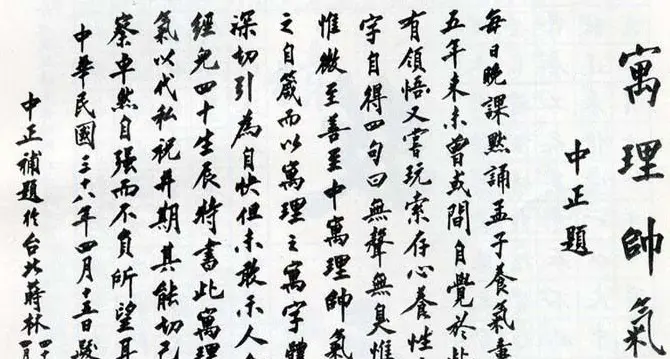 寓理帥氣
中正題
每日晚課默誦孟子養氣章
五年來未曾或間自覺於此
有領悟又嘗玩索存心養性
字自得四句曰無聲無臭惟
惟微至善至中寓理帥氣
之自箴而以寓理之寓字體
深切引為自快但未敢示人今
經兒四十生辰特書此寓理
氣以代私祝并期其能切己
察卓然自強而不負所望耳
中華民國三十八年四月十五日
中正補題於台北蔣林